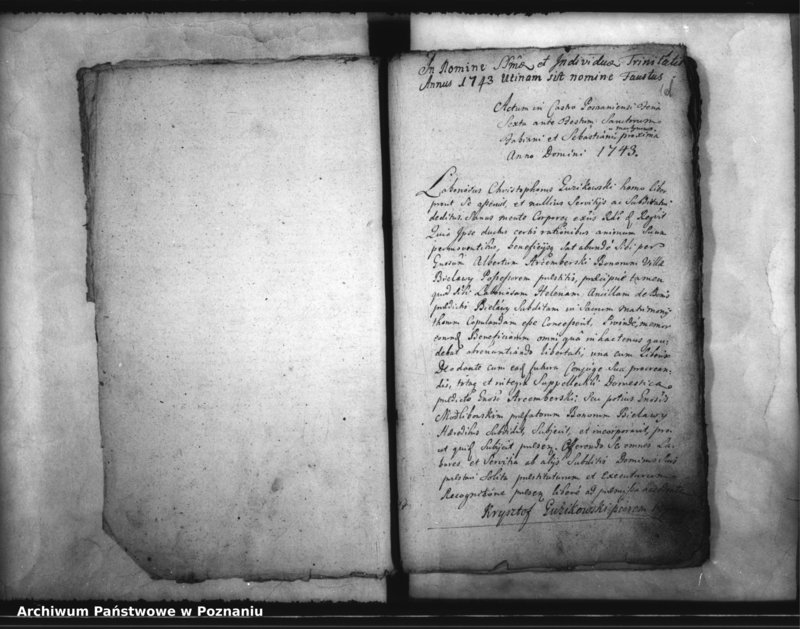 In Nomine SSmæ et Individuæ Trinitatis
Annus 1743 Utinam sit nomine Faustus
Actum in Castro Posnaniensi Feria
Sexta ante Festum Sanctorum
Fabiani et Sebastiani martyrum proxima
Anno Domini 1743.
Laboriosus Christophorus Guzikowski homo liber
prout Se asseruit, et nullius Servitijs ac Subditatui
deditus. Sanus mente Corporeq
Quia Ipse ductus certis rationibus animum Suum
permoventibus, beneficijsq Sat abunde Sibi per
Gnosum Albertum Arcemberski Bonorum Villæ
Bielawy Possessorem præstitis, præcipue tamen
quod Laboriosam Helenam Ancillam de Bonis
prædictis Bielawy Subditam in Sacrum matrimony
thorum Copulandam esse Concessit, proinde memor
Beneficiorum omni qua in hactenus gau
debat abrenuntiando libertati, una cum Liberis
Deo dante cum futura Conjuge Sua procrean
dis, totaq et integra Suppellectili Domestica
prædicto Gnoso Arcemberski Seu potius Gnosis
Modlibowskim præfatorum Bonorum Bielawy
Hæredibus Subdidit, Subjecit, et incorporavit, pro
ut quidem Subijcit Offerendo Se omnes La
bores et Servitia ab alijs Subditis Dominis Suis
præstari Solita præstiturum et executurum
Recognitione libere ad præmissa
Krysztof Guzikowski
Archiwum Państwowe w Poznaniu